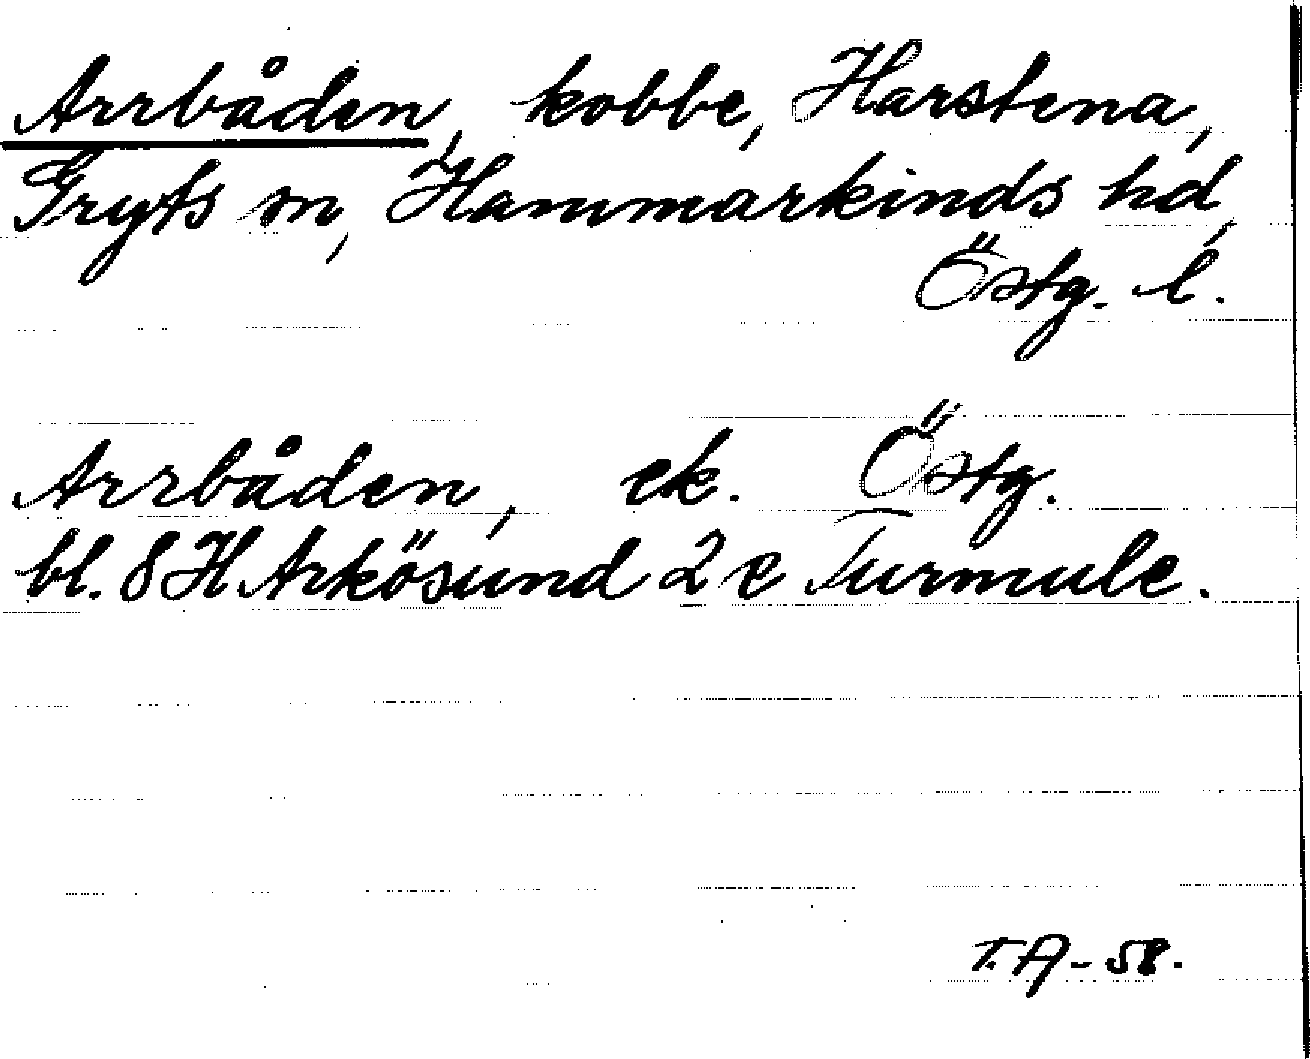 Arrbåden, kobbe, Harstena,
Gryts sn, Hammarkinds hd,
Östg. l.
Arrbåden, ek. Östg.
bl. 8 H Arkösund 2 e Turmule.
T.A-58.